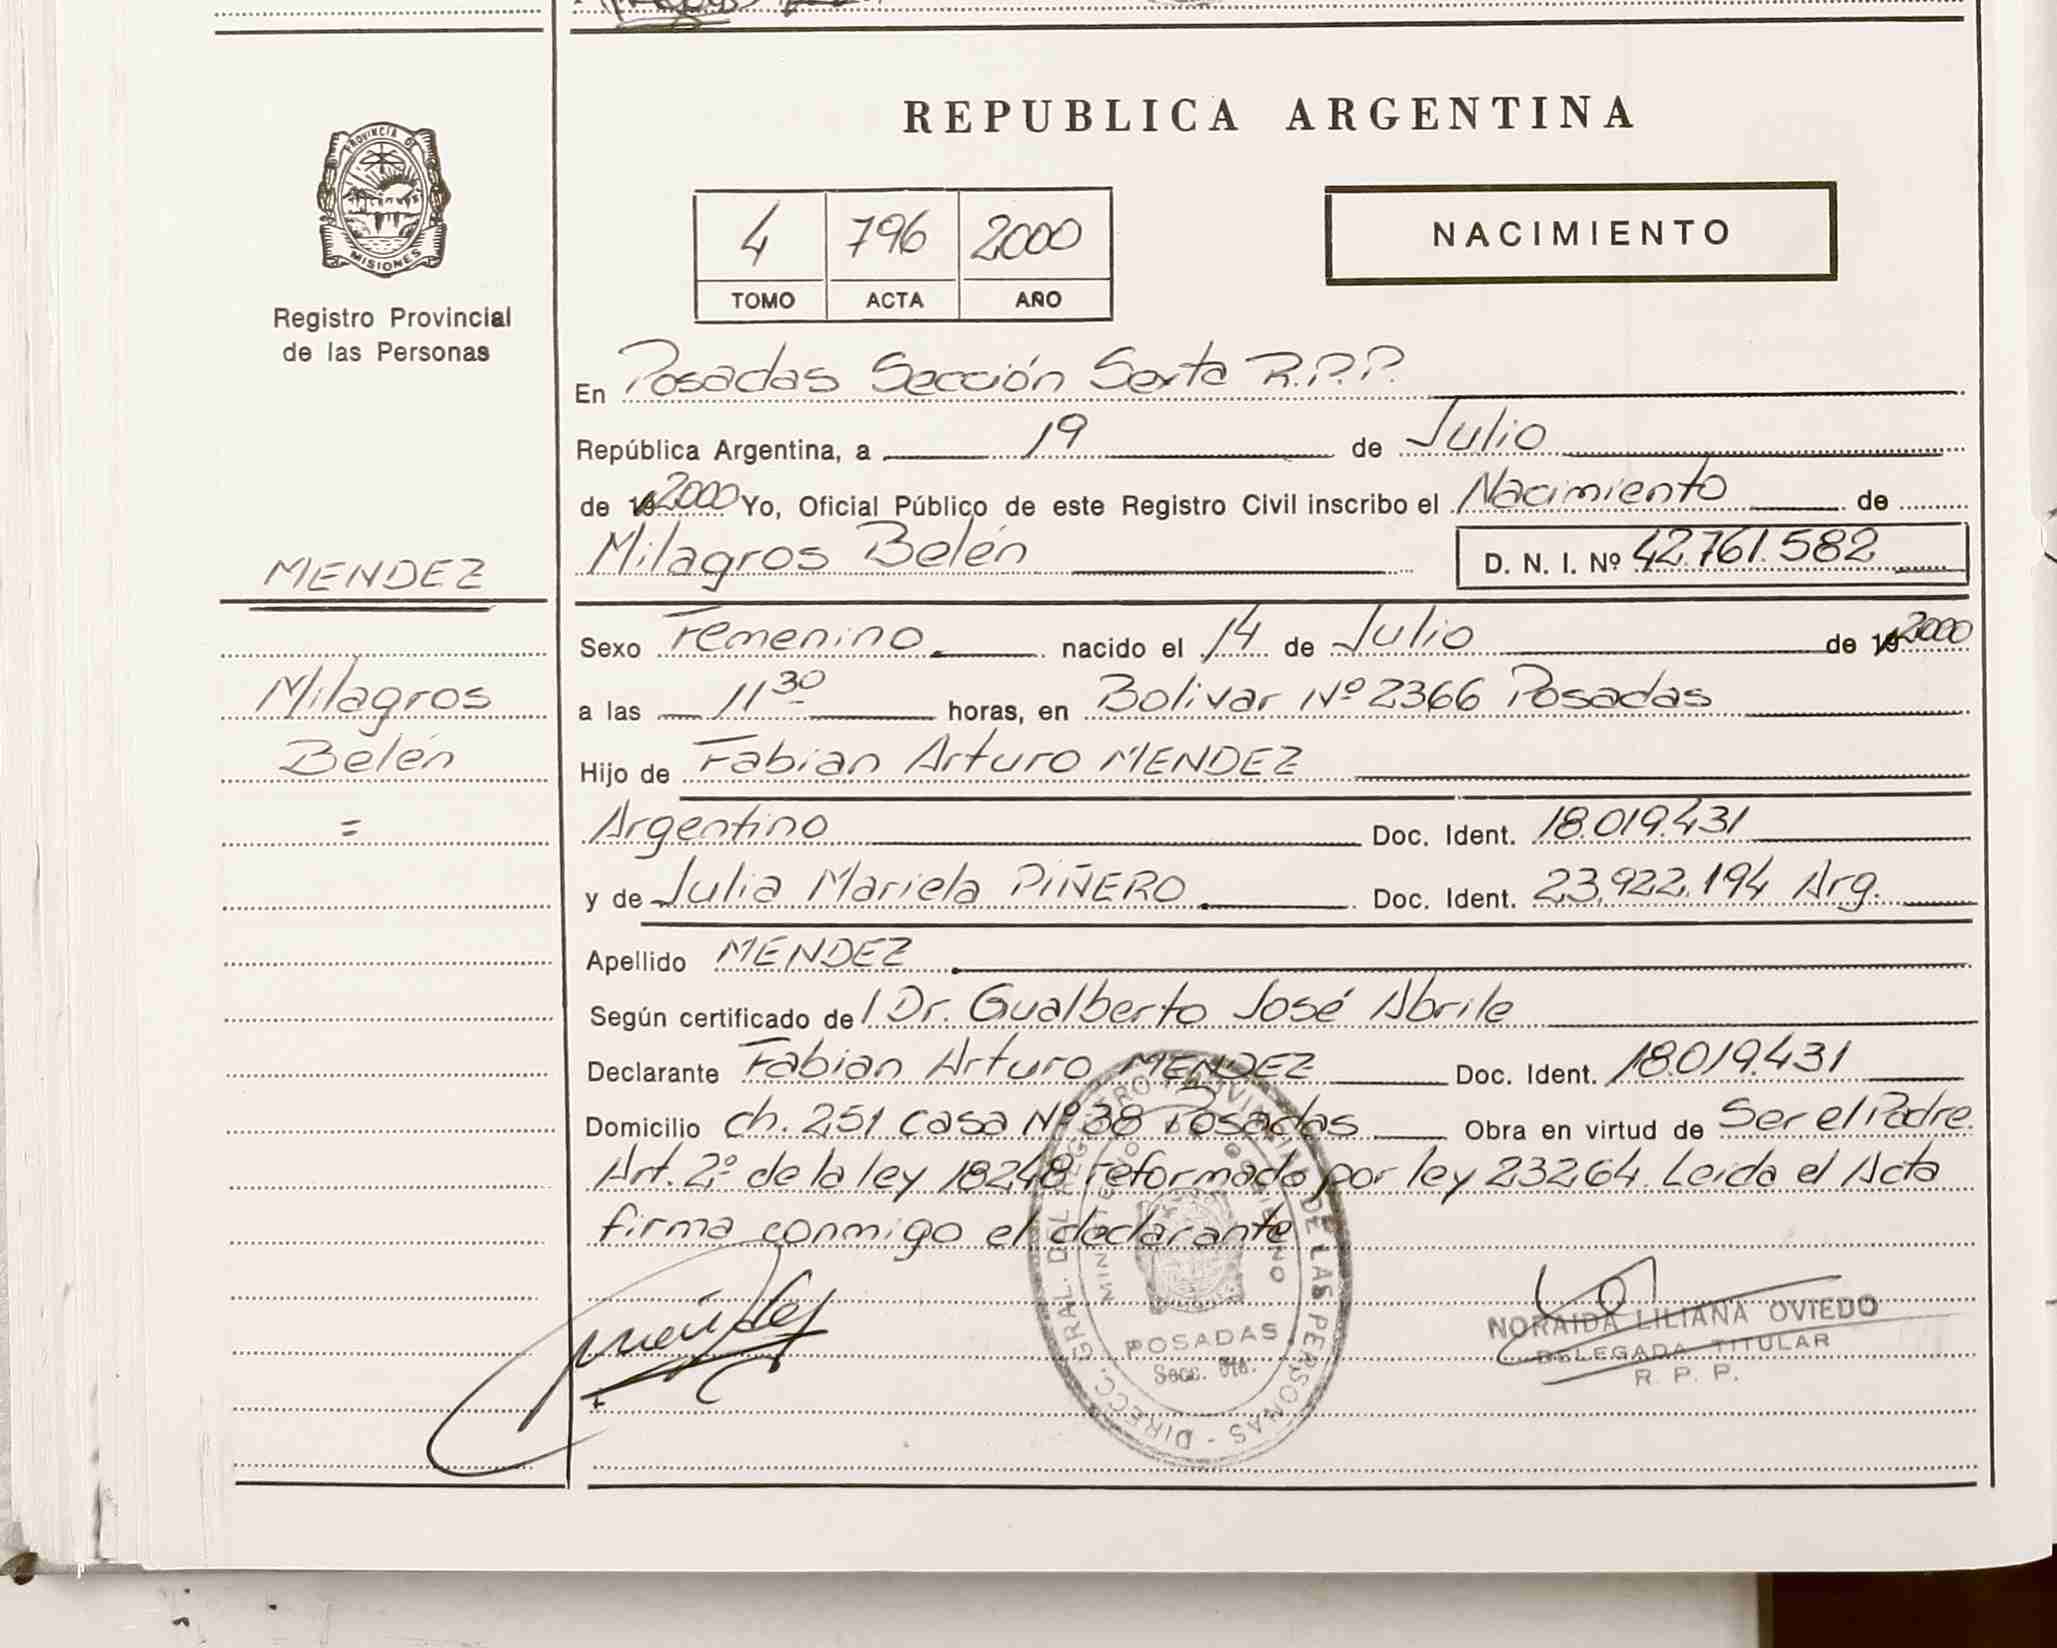 PROVINCIA DE
MISIONES
Registro Provincial
de las Personas
MENDEZ
Milagros
Belén
=
REPUBLICA ARGENTINA
4 796 2000
TOMO ACTA AÑO
NACIMIENTO
En Posadas Sección Sexta R.P.P.
República Argentina, a 19 de Julio
de 19 2000 Yo, Oficial Público de este Registro Civil inscribo el Nacimiento de
Milagros Belén D. N. I. Nº 42.761.582
Sexo Femenino nacido el 14 de Julio de 19 2000
a las 11 30 horas, en Bolivar Nº 2366 Posadas
Hijo de Fabian Arturo MENDEZ
Argentino Doc. Ident. 18.019.431
y de Julia Mariela PIÑERO Doc. Ident. 23.922.194 Arg.
Apellido MENDEZ
Según certificado de l Dr. Gualberto José Abrile
Declarante Fabian Arturo MENDEZ Doc. Ident. 18.019.431
Domicilio ch. 251 casa Nº 38 Posadas Obra en virtud de Ser el Padre.
Art. 2º de la ley 18248 reformado por ley 23264. Leida el Acta
firma conmigo el declarante
DIRECC. GRAL. DEL REGISTRO PROVINCIAL DE LAS PERSONAS -
MINISTERIO GOBIERNO
POSADAS
Secc. 6ta.
NORAIDA LILIANA OVIEDO
DELEGADA TITULAR
R. P. P.